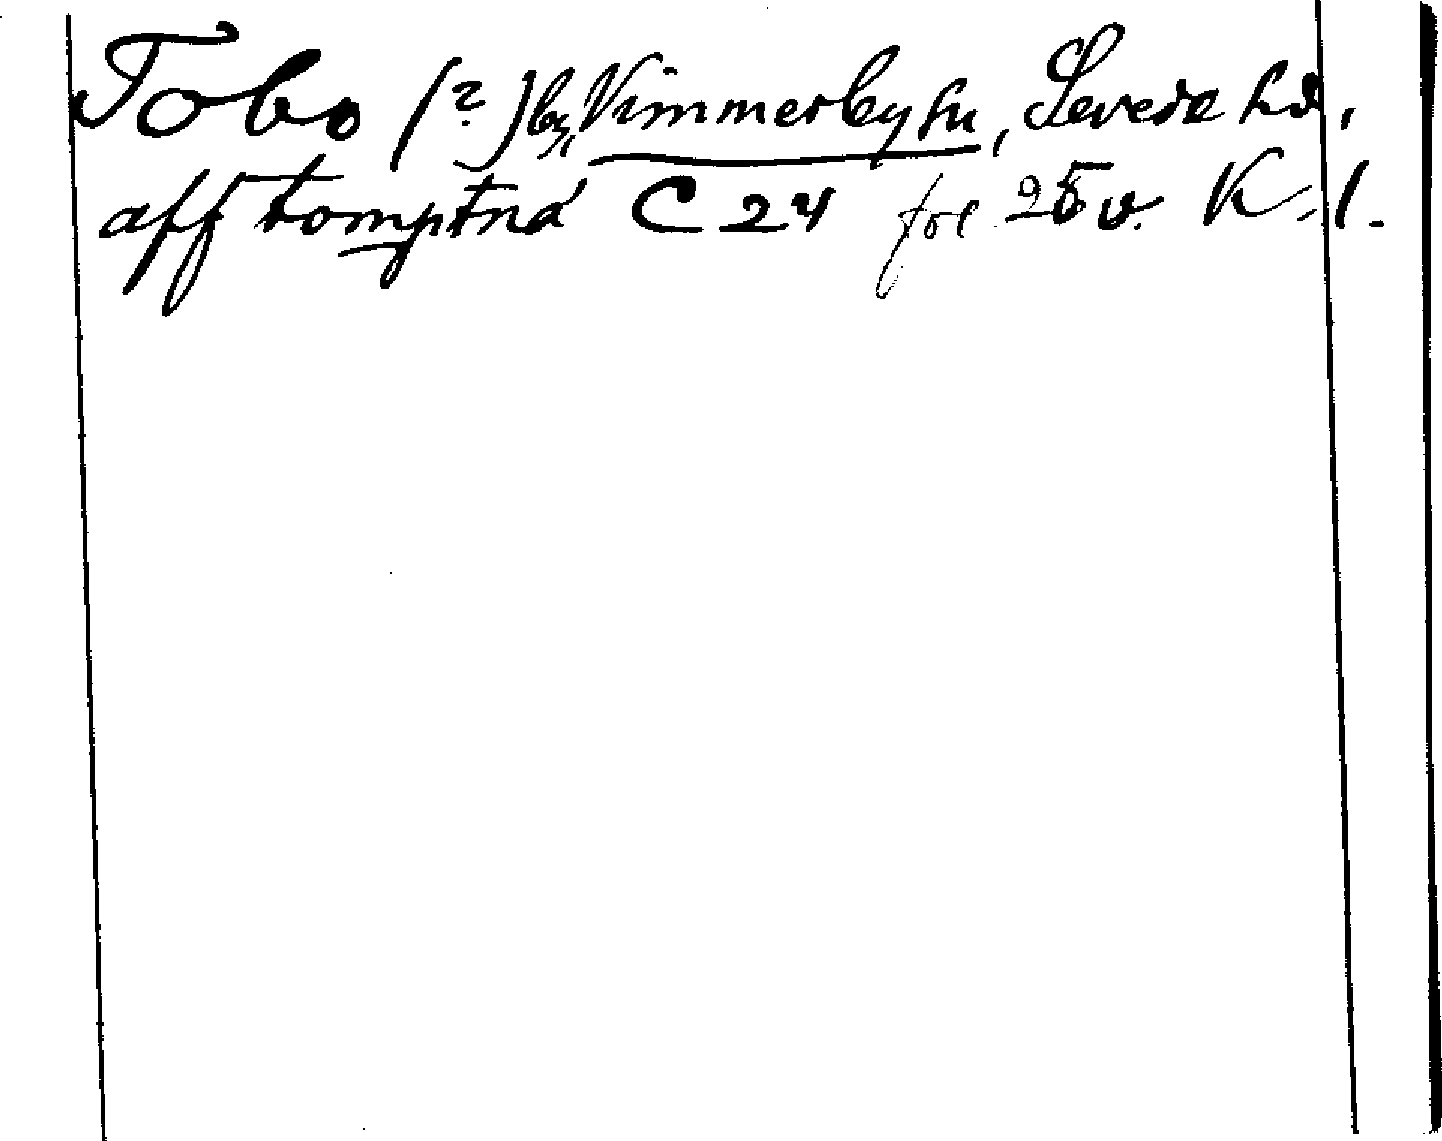 Tobo (?) by, Vimmerby sn, Sevede hd,
aff tomptna C 24 fol 25 v. K-l.